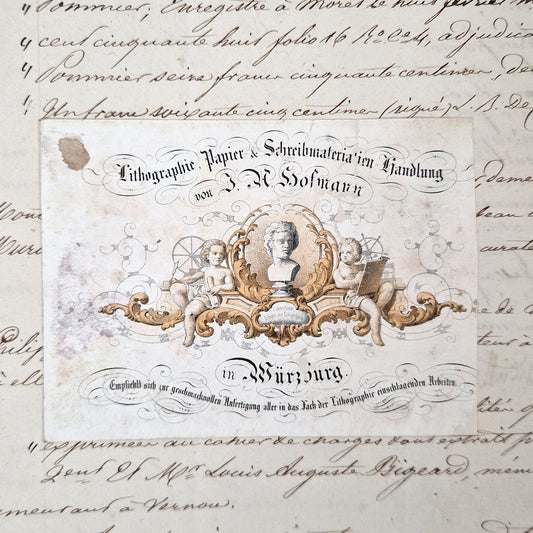 " Pommier, Enregistré à Moret le huit février m
" cent cinquante huit folio 16 Ro Ce 4, adjudica
" Pommier seize francs cinquante centimes, de
" Un franc soixante cinq centimes (signé) L. B. De
Lithographie, Papier & Schreibmaterialien Handlung
von J. A. Hofmann
in Würzburg
Empfiehlt sich zur geschmackvollen Anfertigung aller in das Fach der Lithographie einschlagenden Arbeiten.
" exprimées au cahier de charges dont extrait p
2ent Et Mr Louis Auguste Bigeard, mém
demeurant à Vernou.